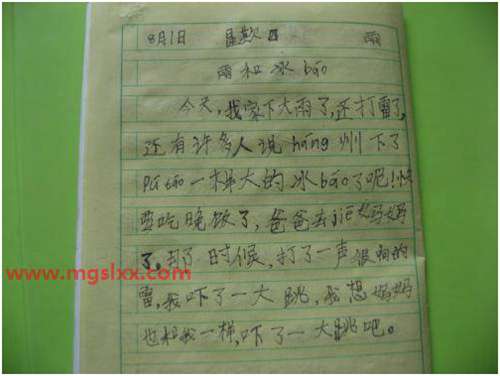 8月1日 星期日 雨
雨和冰báo
今天,我家下大雨了,还打雷了,
还有许多人说háng州下了
Pú táo一样大的冰báo了呢!快
要吃晚饭了,爸爸去jiē妈妈
了。到了时候,打了一声很响的
雷,我吓了一大跳,我想妈妈
也和我一样,吓了一大跳吧。
www.mgslxx.com